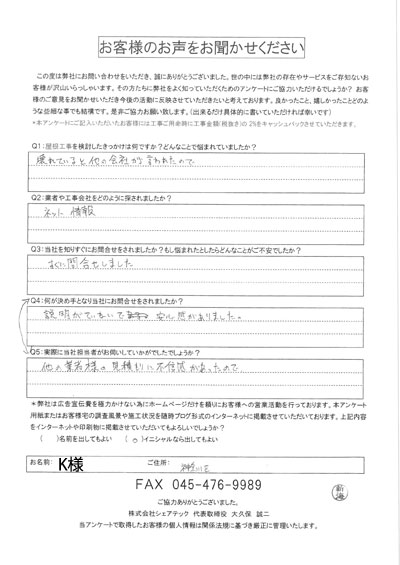 お客様のお声をお聞かせください
この度は弊社にお問い合わせをいただき、誠にありがとうございました。世の中には弊社の存在やサービスをご存知ないお
客様が沢山いらっしゃいます。その方たちに弊社をよく知っていただくためのアンケートにご協力いただけるでしょうか？ お客
様のご意見をお聞かせいただき今後の活動に反映させていただきたいと考えております。良かったこと、嬉しかったことどのよ
うな些細な事でも結構です。是非ご協力お願い致します。(出来るだけ具体的に書いていただければ幸いです)
*本アンケートにご記入いただいたお客様には工事ご用命時に工事金額(税抜き)の 2%をキャッシュバックさせていただきます。
Q1：屋根工事を検討したきっかけは何ですか？どんなことで悩まれていましたか？
壊れていると他の会社から言われたので
Q2：業者や工事会社をどのように探されましたか？
ネット情報
Q3：当社を知りすぐにお問合せをされましたか？もし悩まれたとしたらどんなことがご不安でしたか？
すぐに問合せしました
Q4：何が決め手となり当社にお問合せをされましたか？
説明がていねいで 安心感がありました。
Q5：実際に当社担当者がお伺いしていかがでしたでしょうか？
他の業者様の見積りに不信感があったので
＊弊社は広告宣伝費を極力かけない為にホームページだけを頼りにお客様への営業活動を行っております。本アンケート
用紙またはお客様宅の調査風景や施工状況を随時ブログ形式のインターネットに掲載させていただいております。上記内容
をインターネットや印刷物に掲載させていただいてもよろしいでしょうか？
( )名前を出してもよい (○)イニシャルなら出してもよい
お名前： K様 ご住所： 神奈川区
FAX 045-476-9989
ご協力ありがとうございました。
株式会社シェアテック 代表取締役 大久保 誠二
当アンケートで取得したお客様の個人情報は関係法規に基づき厳正に管理いたします。